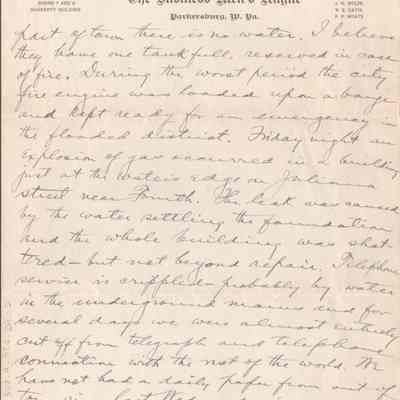 The Business Men's League
Parkersburg, W. Va.
part of town there is no water. I believe
they have one tank full, reserved in case
of fire. During the worst period the city
fire engine was loaded upon a barge
and kept ready for an emergency in
the flooded district. Friday night an
explosion of gas occurred in a building
just at the water's edge on Juliana
street near Fourth. The leak was caused
by the water settling the foundation
and the whole building was shat
tred - but not beyond repair. Telephone
service is crippled - probably by water
in the underground mains and for
several days we were almost entirely
cut off from telegraph and telephone
connection with the rest of the world. We
have not had a daily paper from out of